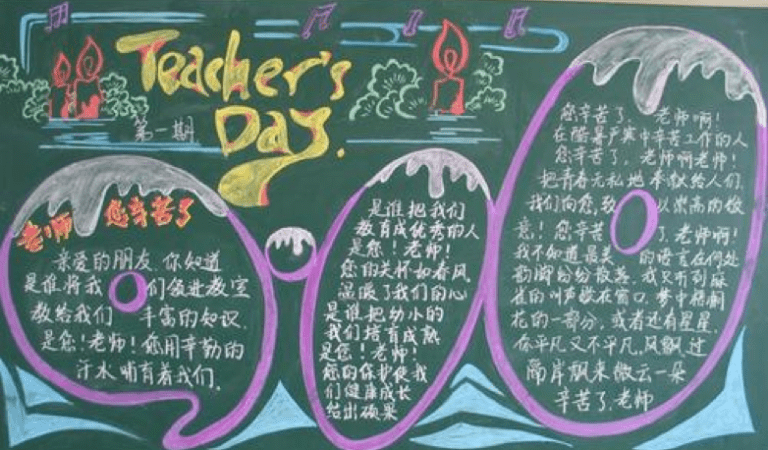 Teacher's
Day.
第一期
老师 您辛苦了
亲爱的朋友.你知道
是谁将我们领进教室
教给我们丰富的知识.
是您!老师!您用辛勤的
汗水哺育着我们.
是谁把我们
教育成优秀的人
是您!老师!
您的关怀如春风.
温暖了我们的心
是谁把幼小的
我们培育成熟
是您!老师!
您的保护使我
们健康成长
结出硕果
您辛苦了,老师啊!
在酷暑严寒中辛苦工作的人
您辛苦了,老师啊老师!
把青春无私地奉献给人们.
我们向您,致以崇高的敬
意!您辛苦了,老师啊!
我不知道最美的语言在何处
韵脚纷纷散落,我只听到麻
雀的叫声歇在窗口,梦中
花的一部分,或者还有星星.
你平凡又不平凡,风飘过
隔岸飘来微云一朵
辛苦了,老师